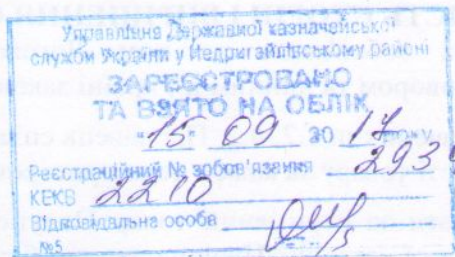 Управління Державної казначейської
служби України у Недригайлівському районі
ЗАРЕЄСТРОВАНО
ТА ВЗЯТО НА ОБЛІК
"15" 09 20 17 року
Реєстраційний № зобов'язання 293
КЕКВ 2210
Відповідальна особа
№5